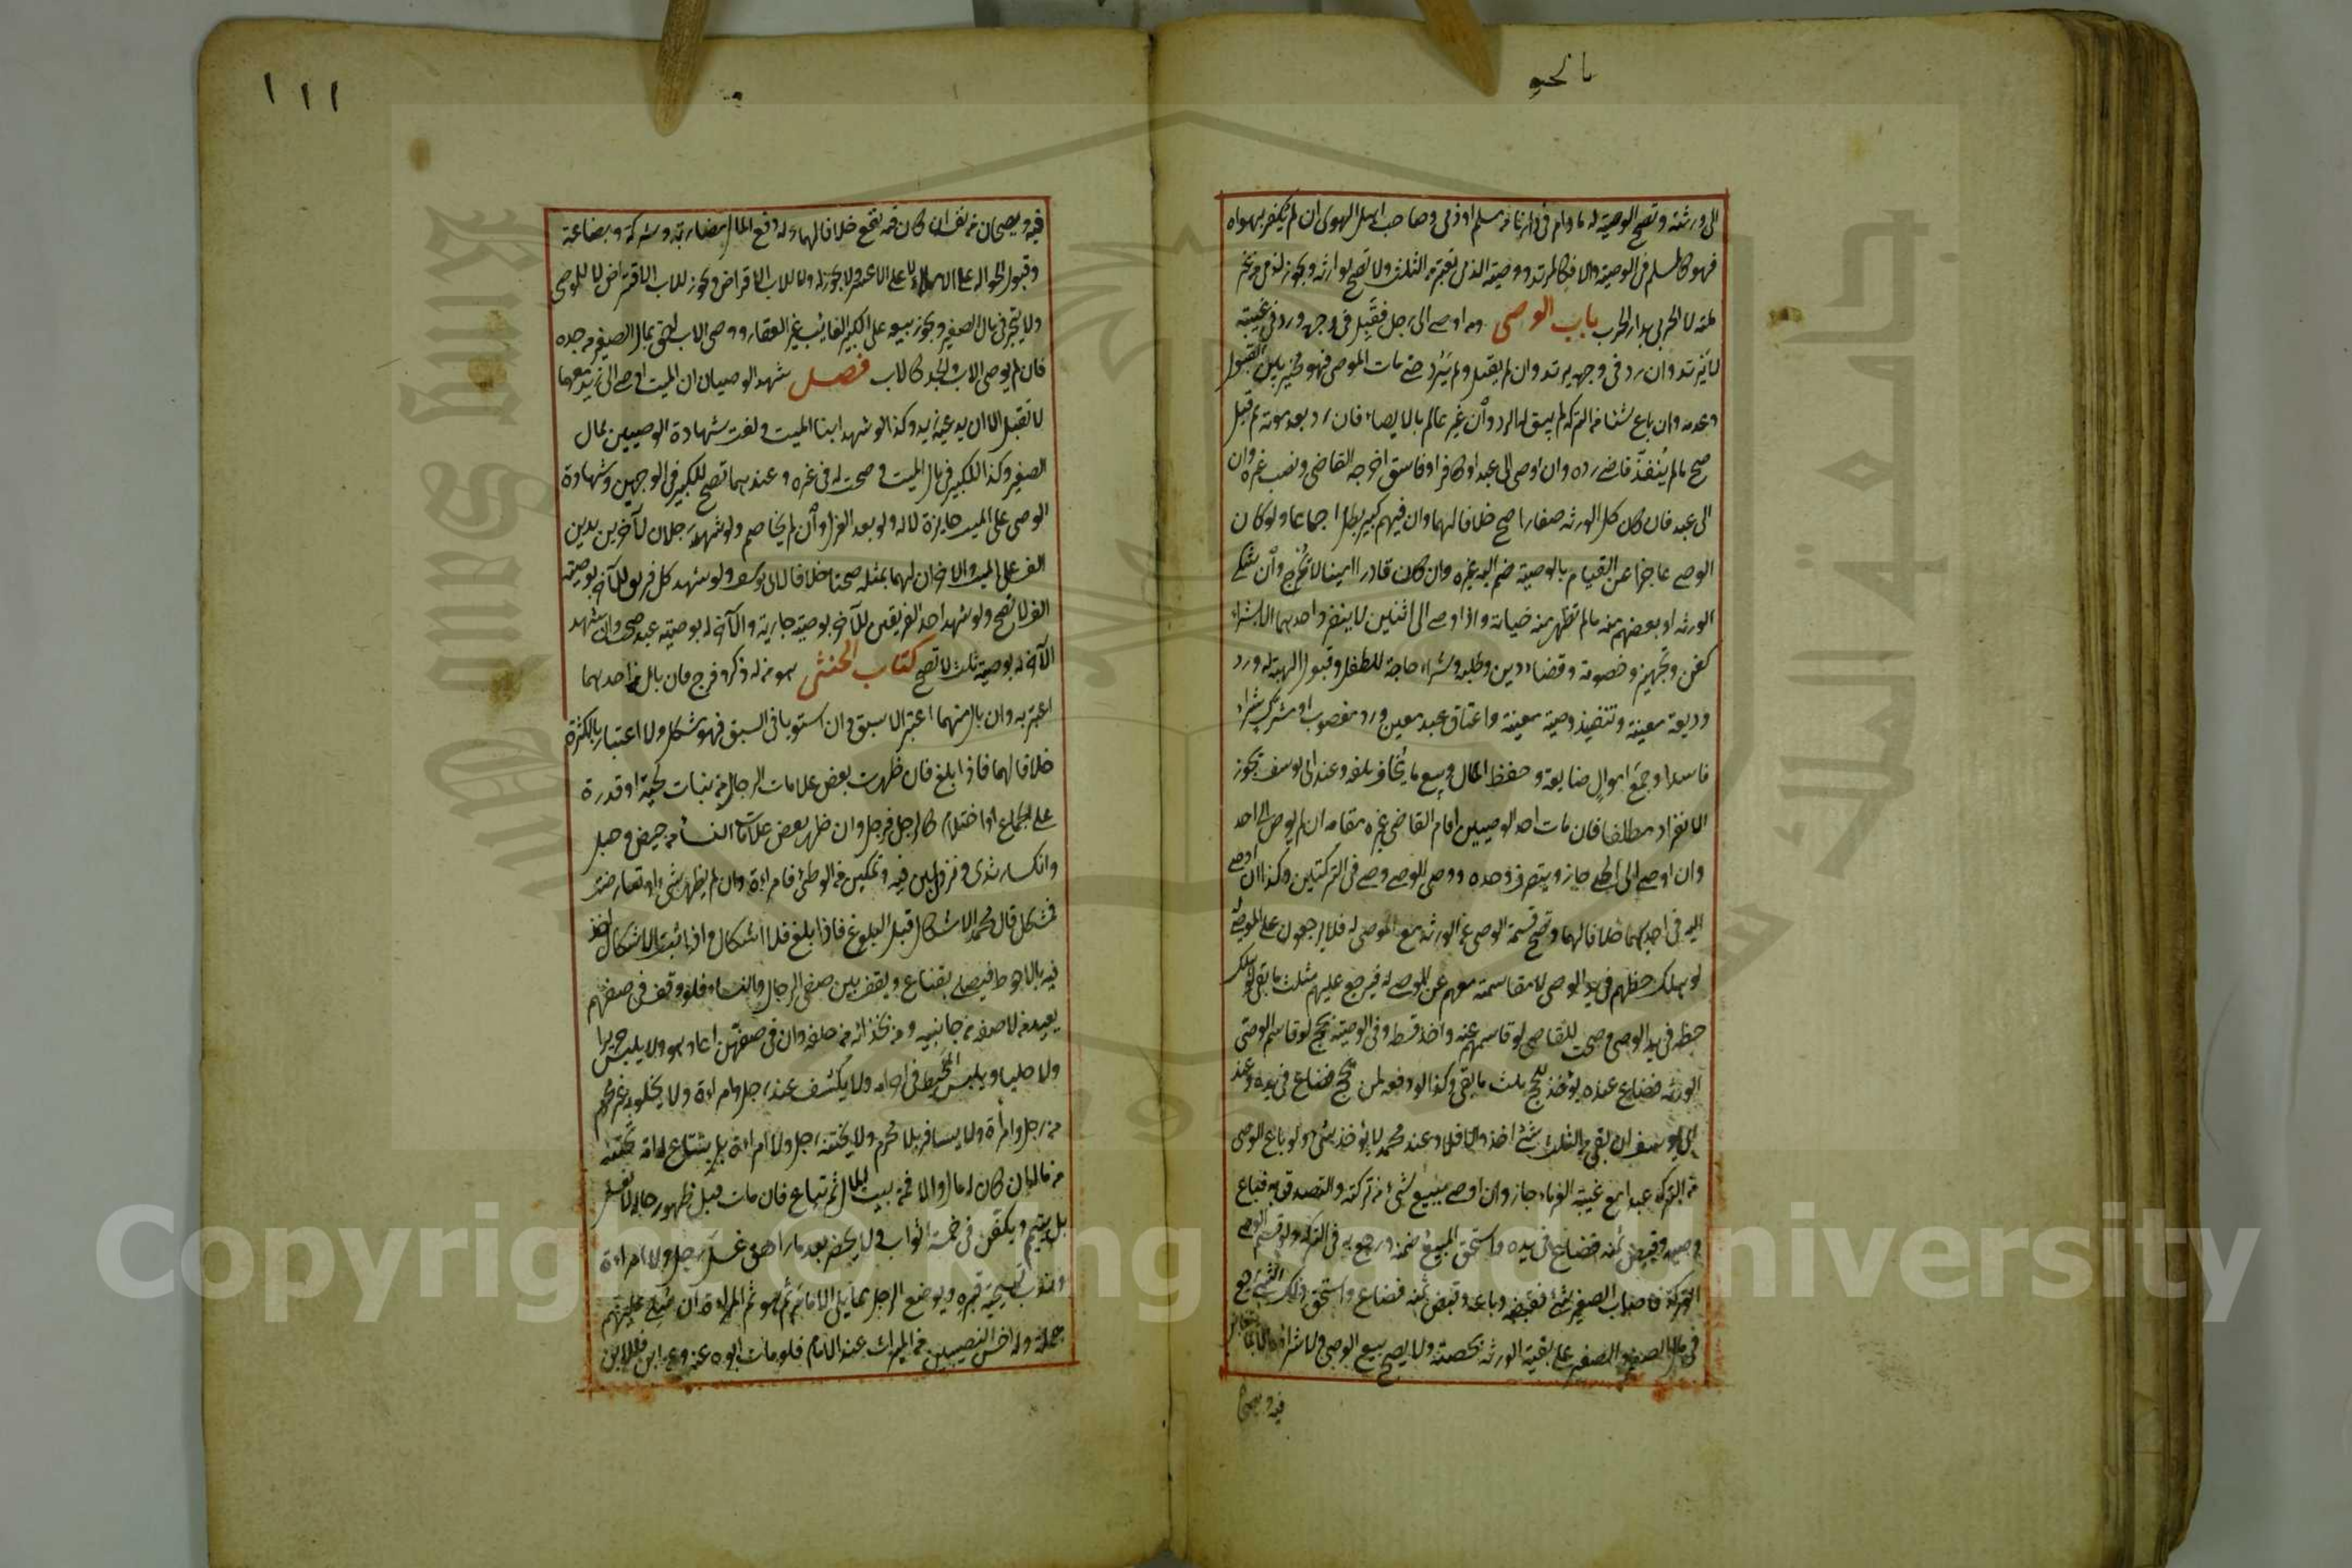 بالخير
الى ورثته وتصح الوصية له ما دام في دارنا من مسلم او ذمي وصاحب اهل الهوى ان لم يكفر بهواه
فهو كالمسلم في الوصية والا فكالمرتد ووصية الذمي تعتبر من الثلث ولا تصح لوارثه وتجوز لذمي من غير
ملته لا لحربي بدار الحرب باب الوصي ومن اوصى الى رجل فقبل في وجهه ورد في غيبته
لا يرتد وان رد في وجهه يرتد وان لم يقبل ولم يرد حتى مات الموصي فهو مخير بين القبول
وعدمه وان باع شيئا من التركة لم يبق له الرد وان غير عالم بالايصاء فان رد بعد موته ثم قبل
صح ما لم ينفذ قاض رده وان اوصى الى عبد او كافر او فاسق اخرجه القاضي ونصب غيره وان
الى عبده فان كان كل الورثة صغارا صح خلافا لهما وان فيهم كبير بطل اجماعا ولو كان
الوصي عاجزا عن القيام بالوصية ضم اليه غيره وان كان قادرا امينا لا يخرج وان شكى
الورثة او بعضهم منه ما لم تظهر منه خيانة واذا اوصى الى اثنين لا ينفرد احدهما الا بشراء
كفن وتجهيز وخصومة وقضاء دين وطلبه وشراء حاجة للطفل وقبول الهبة له ورد
وديعة معينة وتنفيذ وصية معينة واعتاق عبد معين ورد مغصوب او مشترى شراء
فاسدا وجمع اموال ضايعة وحفظ المال وبيع ما يخاف تلفه وعند ابي يوسف يجوز
الانفراد مطلقا فان مات احد الوصيين اقام القاضي غيره مقامه ان لم يوص الى احد
وان اوصى الى الحي جاز ويتصرف وحده ووصي الوصي وصي في التركتين وكذا ان اوصى
اليه في احديهما خلافا لهما وتصح قسمة الوصي عن الورثة مع الموصى له فلا يرجعون على الموصى له
لو هلك حظهم في يد الوصي لا مقاسمته معهم عن الموصى له فيرجع عليهم بثلث ما بقي لو هلك
حظه في يد الوصي وصحت للقاضي لو قاسمهم عنه واخذ قسطه وفي الوصية بحج لو قاسم الوصي
الورثة فضاع عنده يؤخذ للحج بثلث ما بقي وكذا لو دفعه لمن يحج فضاع في يده وعند
ابي يوسف ان بقي من الثلث شئ اخذ والا فلا وعند محمد لا يؤخذ شئ ولو باع الوصي
من التركة عبدا مع غيبة الغرماء جاز وان اوصى ببيع شئ من تركته والتصدق به فباع
وصيه وقبض ثمنه فضاع في يده واستحق المبيع ضمنه ورجع به في التركة ولو قسم الوصي
التركة فاصاب الصغير شئ فقبضه وباعه وقبض ثمنه فضاع واستحق ذلك الشئ رجع
في مال الصغير والصغير على بقية الورثة بحصته ولا يصح بيع الوصي ولا شراؤه الا بما يتغابن
فيه ويصحان
١١١
فيه ويصحان من نفسه ان كان فيه نفع خلافا لهما وله دفع المال مضاربة وشركة وبضاعة
وقبول الحوالة على الاملاء لا على الاعسر ولا يجوز له ولا للاب الاقراض ويجوز للاب الاقتراض لا للوصي
ولا يتجر في مال الصغير ويجوز بيعه على الكبير الغائب غير العقار ووصي الاب احق بمال الصغير من جده
فان لم يوص الاب فالجد كالاب فصل شهد الوصيان ان الميت اوصى الى زيد معهما
لا تقبل الا ان يدعيه زيد وكذا لو شهد ابنا الميت ولغت شهادة الوصيين بمال
الصغير وكذا للكبير في مال الميت وصحت له في غيره وعندهما تصح للكبير في الوجهين وشهادة
الوصي على الميت جايزة لا له ولو بعد العزل وان لم يخاصم ولو شهد رجلان لآخرين بدين
الف على الميت والآخران لهما بمثله صحتا خلافا لابي يوسف ولو شهد كل فريق للآخر بوصية
الف لا تصح ولو شهد احد الفريقين للآخر بوصية جارية والآخر له بوصية عبد صحت وان شهد
الآخر له بوصية ثلث لا تصح كتاب الخنثى هو من له ذكر وفرج فان بال من احدهما
اعتبر به وان بال منهما اعتبر الاسبق وان استويا في السبق فهو مشكل ولا اعتبار بالكثرة
خلافا لهما فاذا بلغ فان ظهرت بعض علامات الرجال من نبات لحية او قدرة
على الجماع او احتلام كالرجل فرجل وان ظهر بعض علامات النساء من حيض وحبل
وانكسار ثدي ونزول لبن فيه وتمكين من الوطئ فامراة وان لم يظهر شئ او تعارضت
فمشكل قال محمد الاشكال قبل البلوغ فاذا بلغ فلا اشكال واذا ثبت الاشكال اخذ
فيه بالاحوط فيصلي بقناع ويقف بين صفي الرجال والنساء فلو وقف في صفهم
يعيد من لاصقه من جانبيه ومن بحذائه من خلفه وان في صفهن اعاد هو ولا يلبس حريرا
ولا حليا ويلبس المخيط في احرامه ولا يكشف عند رجل وامراة ولا يخلو به غير محرم
من رجل وامراة ولا يسافر بلا محرم ولا يختنه رجل ولا امراة بل يبتاع له امة تختنه
من ماله ان كان له مال والا فمن بيت المال ثم تباع فان مات قبل ظهور حاله لا يغسل
بل ييمم ويكفن في خمسة اثواب ولا يحضر بعد ما راهق غسل رجل ولا امراة
وندب تسجية قبره ويوضع الرجل مما يلي الامام ثم هو ثم المراة ان صلي عليهم
جملة وله اخس النصيبين من الميراث عند الامام فلو مات ابوه عنه وعن ابن فللابن